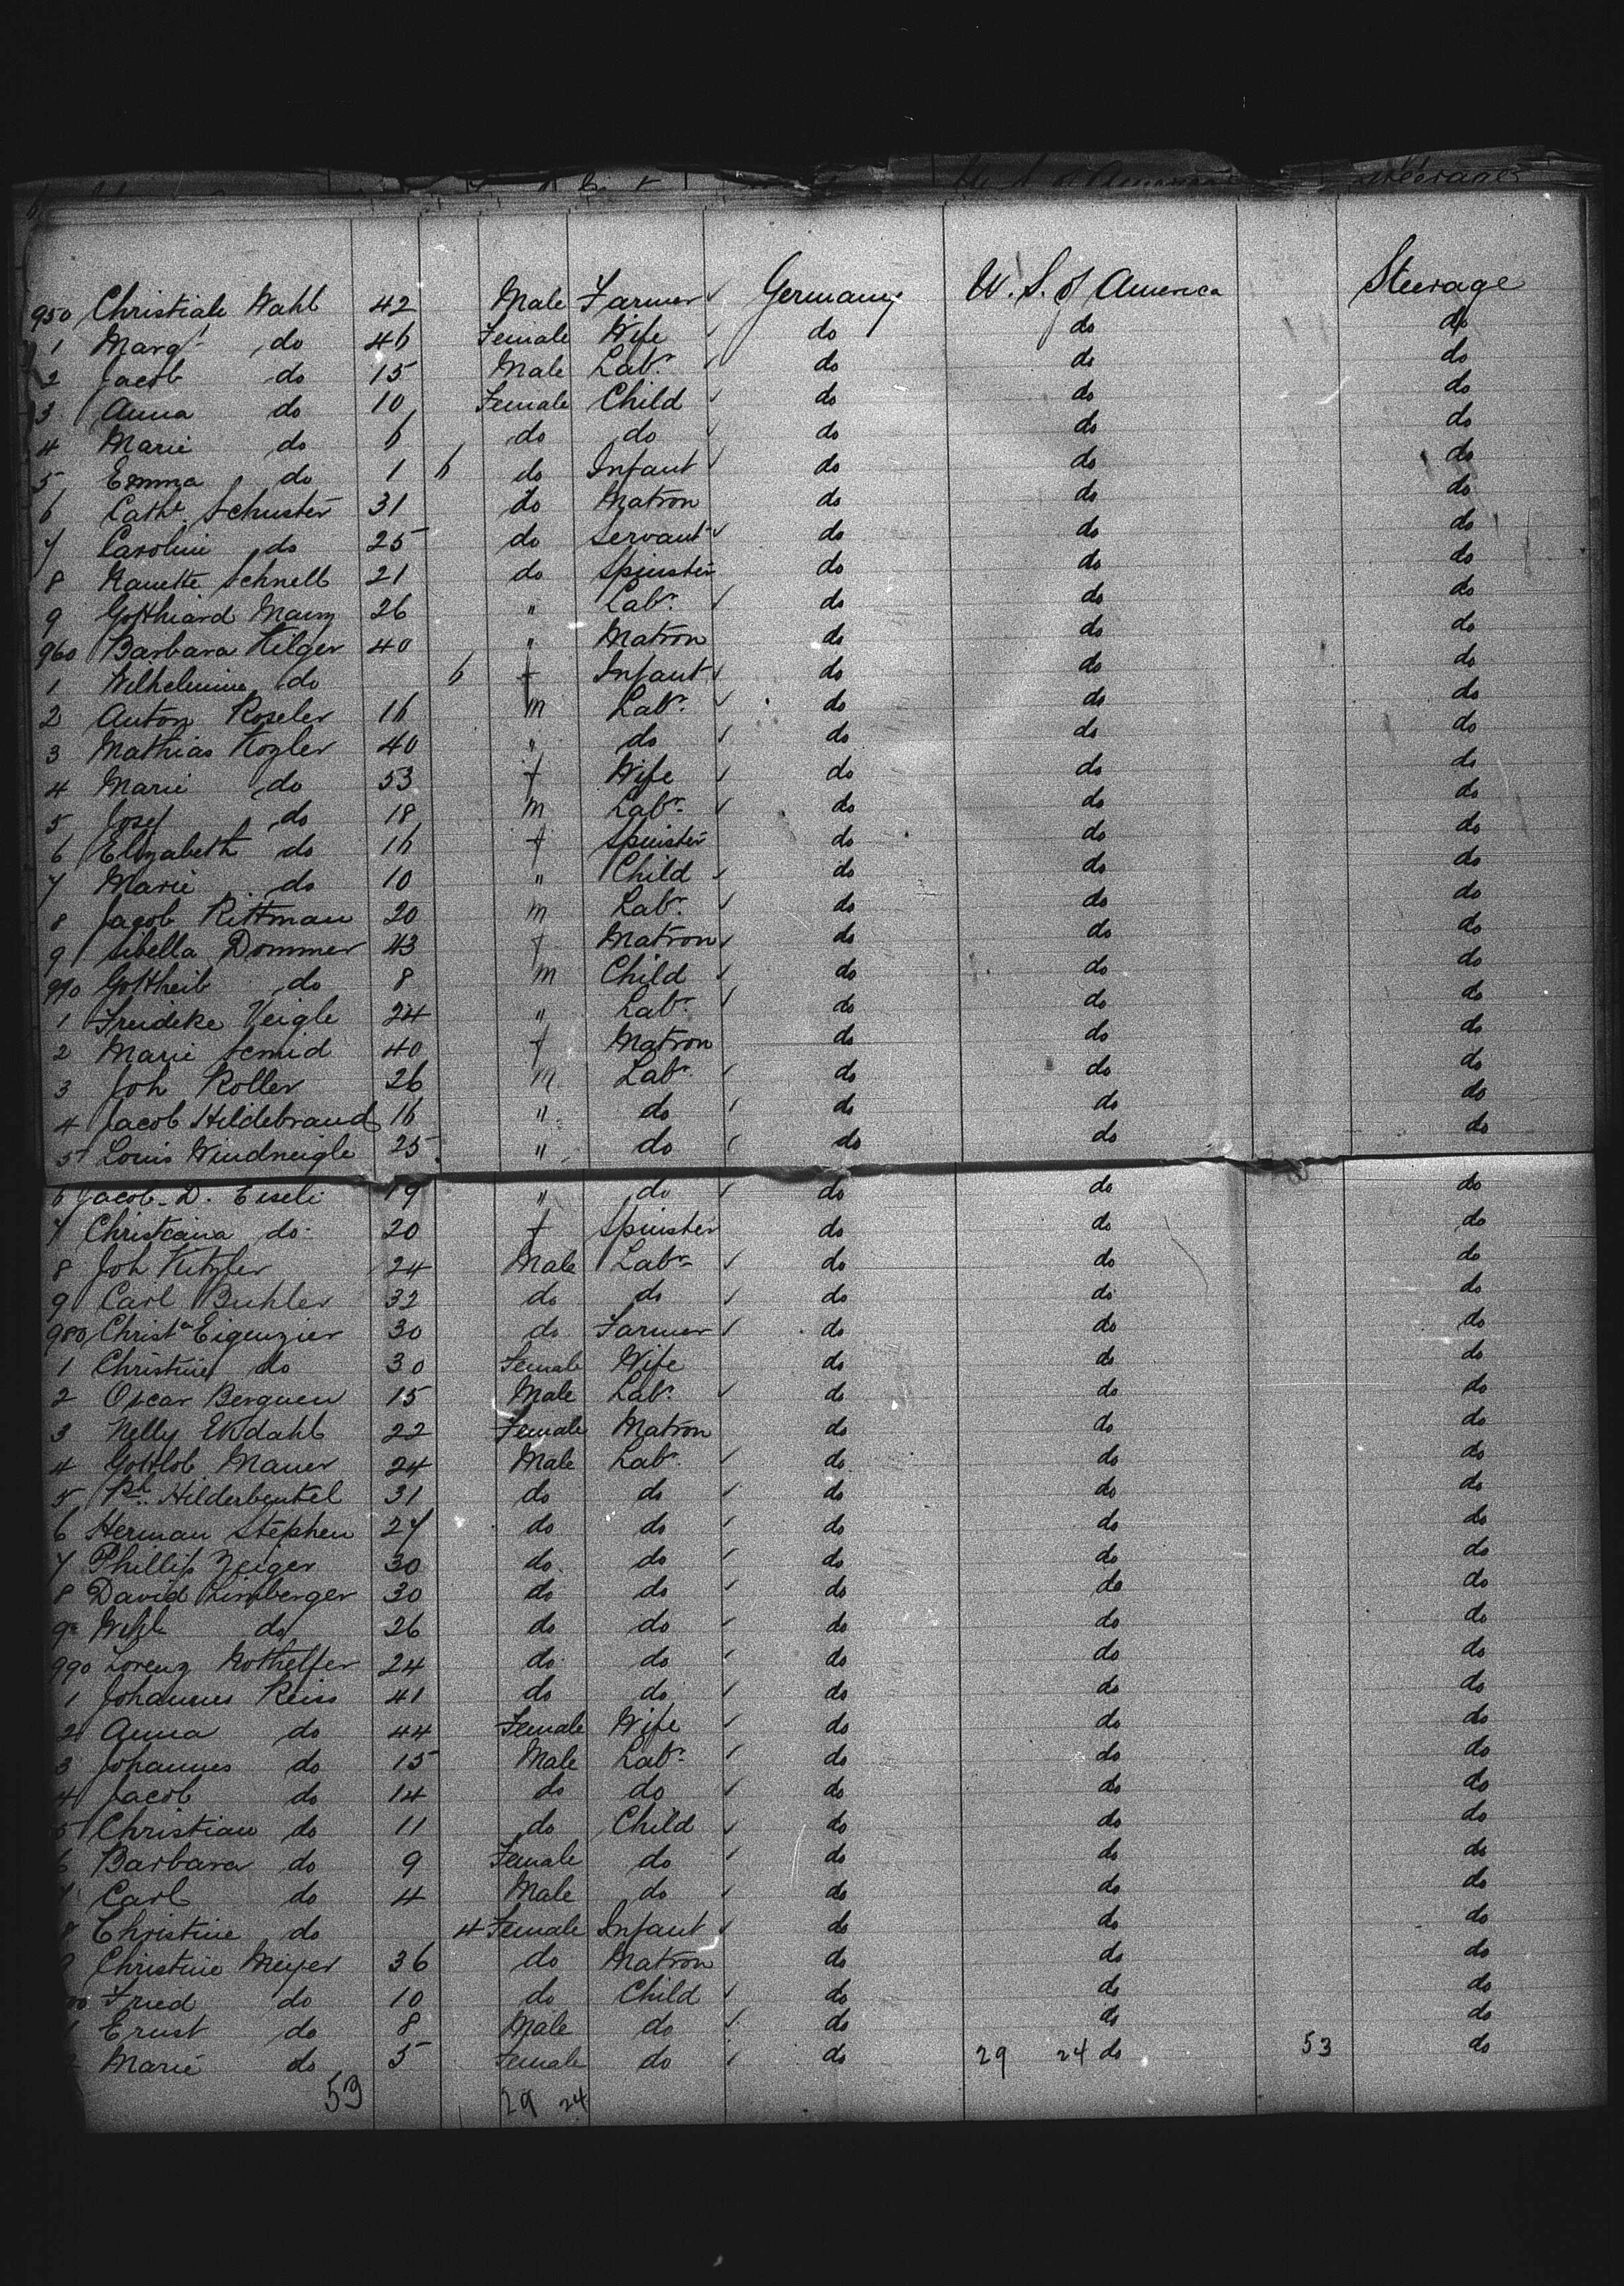 U. S. of America Steerage
950 Christiale Wahl 42 Male Farmer ✓ Germany U. S. of America Steerage
1 Marg't do 46 Female Wife ✓ do do do
2 Jacob do 15 Male Labr. ✓ do do do
3 Anna do 10 Female Child ✓ do do do
4 Marie do 6 do do ✓ do do do
5 Emma do 1 6 do Infant ✓ do do do
6 Cathe. Schuster 31 do Matron do do do
7 Caroline do 25 do Servant ✓ do do do
8 Nanette Schnell 21 do Spinster do do do
9 Gotthard 26 " Labr. ✓ do do do
960 Barbara Kilger 40 " Matron do do do
1 Wilhelmine do 6 f Infant ✓ do do do
2 Anton Roseler 16 m Labr. ✓ do do do
3 Mathias Kogler 40 " do ✓ do do do
4 Marie do 53 f Wife ✓ do do do
5 Josef do 18 m Labr. ✓ do do do
6 Elizabeth do 16 f Spinster do do do
7 Marie do 10 " Child ✓ do do do
8 Jacob Rittman 20 m Labr. ✓ do do do
9 Sibella Dommer 43 f Matron ✓ do do do
970 Gottheib do 8 m Child ✓ do do do
1 Freideke Veigle 24 " Labr. ✓ do do do
2 Marie Scmid 40 f Matron do do do
3 Joh Roller 26 m Labr. ✓ do do do
4 Jacob Hildebrand 16 " do ✓ do do do
5 Louis Windneigle 25 " do ✓ do do do
6 Jacob D. Eiseli 19 " do ✓ do do do
7 Christiana do 20 f Spinster do do do
8 Joh Kitzler 24 Male Labr. ✓ do do do
9 Carl Buhler 32 do do ✓ do do do
980 Christn Eigenzier 30 do Farmer ✓ do do do
1 Christine do 30 Female Wife do do do
2 Oscar Berguen 15 Male Labr. ✓ do do do
3 Nelly Ekdahl 22 Female Matron do do do
4 Gottlob Mauer 24 Male Labr. ✓ do do do
5 Ph. Hilderbeutel 31 do do ✓ do do do
6 Herman Stephen 27 do do ✓ do do do
7 Phillip Zeiger 30 do do ✓ do do do
8 David Limberger 30 do do ✓ do do do
9 do 26 do do ✓ do do do
990 Lorenz Nothelfer 24 do do ✓ do do do
1 Johannes Reiss 41 do do ✓ do do do
2 Anna do 44 Female Wife ✓ do do do
3 Johannes do 15 Male Labr. ✓ do do do
4 Jacob do 14 do do ✓ do do do
5 Christian do 11 do Child ✓ do do do
6 Barbara do 9 Female do ✓ do do do
7 Carl do 4 Male do ✓ do do do
8 Christine do 4 Female Infant ✓ do do do
9 Christine Meyer 36 do Matron do do do
Fried do 10 do Child ✓ do do do
1 Ernst do 8 Male do ✓ do do do
2 Marie do 5 Female do ✓ do 29 24 do 53 do
53 29 24